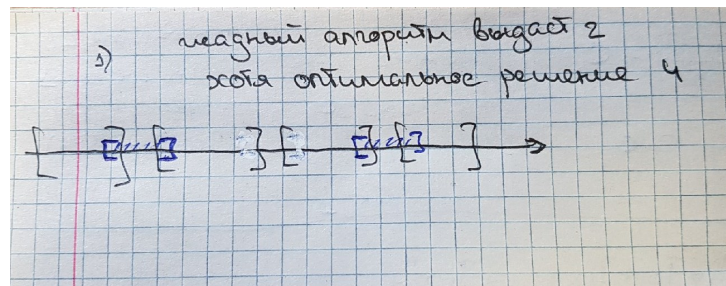 жадный алгоритм выдаст 2
1)
хотя оптимальное решение 4